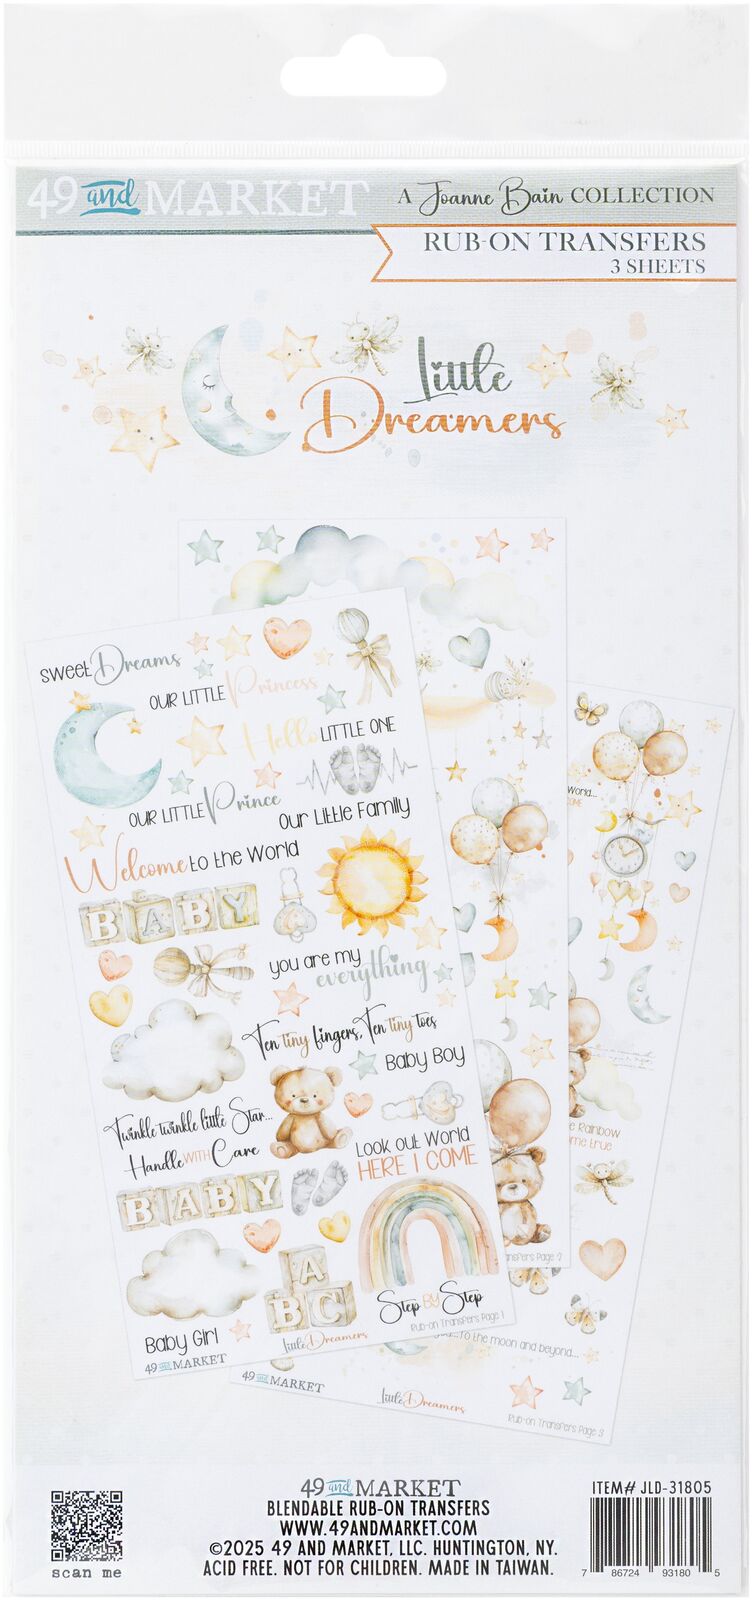 49 and MARKET
A Joanne Bain COLLECTION
RUB-ON TRANSFERS
3 SHEETS
Little
Dreamers
sweet Dreams
OUR LITTLE Princess
Hello LITTLE ONE
OUR LITTLE Prince
Our Little Family
Welcome to the World
BABY
you are my
everything
Ten tiny fingers, Ten tiny toes
Baby Boy
Twinkle twinkle little Star...
Handle WITH Care
Look out World
HERE I COME
BABY
A
B C
Step BY Step
Rub-on Transfers Page 1
Baby Girl
Little Dreamers
49 and MARKET
World...
Rainbow
come true
Transfers Page 2
...to the moon and beyond...
49 and MARKET
Little Dreamers
Rub-on Transfers Page 3
scan me
49 and MARKET
BLENDABLE RUB-ON TRANSFERS
WWW.49ANDMARKET.COM
©2025 49 AND MARKET, LLC. HUNTINGTON, NY.
ACID FREE. NOT FOR CHILDREN. MADE IN TAIWAN.
ITEM# JLD-31805
7 86724 93180 5